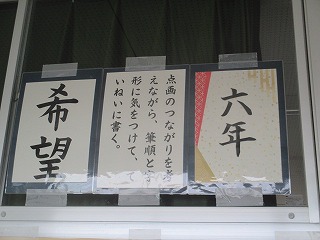 六年
点画のつながりを考
えながら、筆順と字
形に気をつけて、て
いねいに書く。
希望